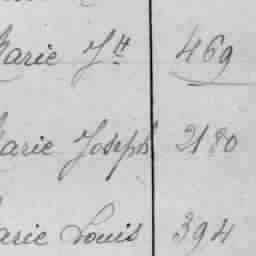 Marie J.H 469
Marie Joseph 2180
Marie Louis 394